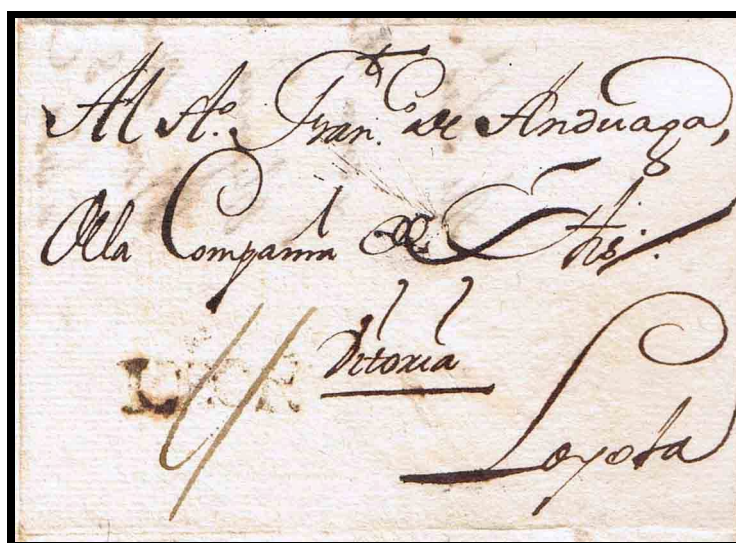 Al H.º Fran.co de Anduaga,
de la Compañia de Jhs.
Vitoria
Loyola